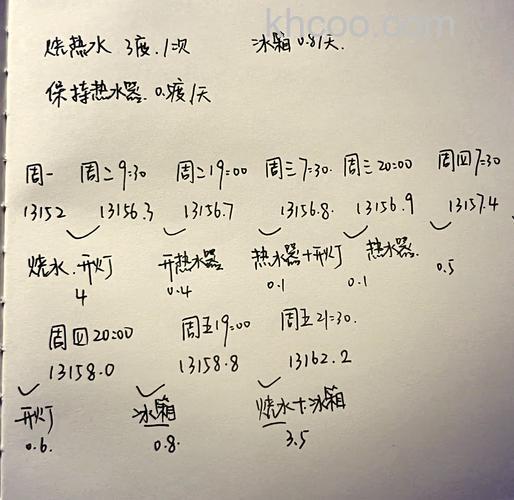 khcoo.com
烧热水 3度/1次 冰箱 0.8/天.
保持热水器. 0.5度/天
周一 周二9:30 周二19:00 周三7:30. 周三20:00 周四7:30
13152 13156.3 13156.7 13156.8. 13156.9 13157.4
烧水.开灯 开热水器 热水器+开灯 热水器.
4 0.4 0.1 0.1 0.5
周四20:00 周五19:00 周五21:30.
13158.0 13158.8 13162.2
开灯 冰箱 烧水+冰箱
0.6. 0.8. 3.5